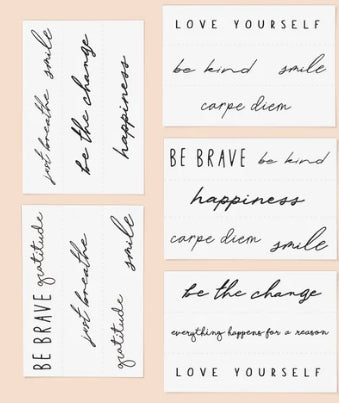 just breathe smile
be the change
happiness
LOVE YOURSELF
be kind smile
carpe diem
BE BRAVE be kind
happiness
carpe diem smile
BE BRAVE gratitude
just breathe
gratitude smile
be the change
everything happens for a reason
LOVE YOURSELF